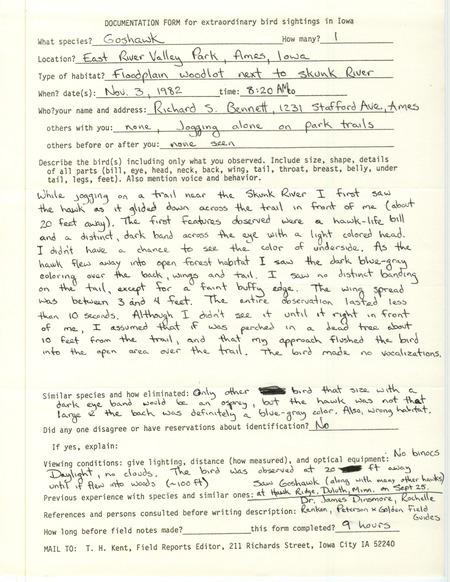 DOCUMENTATION FORM for extraordinary bird sightings in Iowa
What species? Goshawk How many? 1
Location? East River Valley Park, Ames, Iowa
Type of habitat? Floodplain woodlot next to Skunk River
When? date(s): Nov. 3, 1982 time: 8:20 AM to
Who?your name and address: Richard S. Bennett, 1231 Stafford Ave., Ames
others with you: none, Jogging alone on park trails
others before or after you: none seen
Describe the bird(s) including only what you observed. Include size, shape, details
of all parts (bill, eye, head, neck, back, wing, tail, throat, breast, belly, under
tail, legs, feet). Also mention voice and behavior.
While jogging on a trail near the Skunk River I first saw
the hawk as it glided down across the trail in front of me (about
20 feet away). The first features observed were a hawk-like bill
and a distinct, dark band across the eye with a light colored head.
I didn't have a chance to see the color of underside. As the
hawk flew away into open forest habitat I saw the dark blue-gray
coloring over the back, wings and tail. I saw no distinct banding
on the tail, except for a faint buffy edge. The wing spread
was between 3 and 4 feet. The entire observation lasted less
than 10 seconds. Although I didn't see it until it right in front
of me, I assumed that it was perched in a dead tree about
10 feet from the trail, and that my approach flushed the bird
into the open area over the trail. The bird made no vocalizations.
Similar species and how eliminated: Only other bird that size with a
dark eye band would be an osprey, but the hawk was not that
large & the back was definitely a blue-gray color. Also, wrong habitat.
Did any one disagree or have reservations about identification? No
If yes, explain:
Viewing conditions: give lighting, distance (how measured), and optical equipment: No binocs
Daylight, no clouds. The bird was observed at 20 ft away
until it flew into woods (~100 ft) Saw Goshawk (along with many other hawks)
Previous experience with species and similar ones: at Hawk Ridge, Duluth, Minn. on Sept 25.
Dr. James Dinsmore, Rochelle
References and persons consulted before writing description: Renken, Peterson & Golden Field
Guides
How long before field notes made? this form completed? 9 hours
MAIL TO: T. H. Kent, Field Reports Editor, 211 Richards Street, Iowa City IA 52240